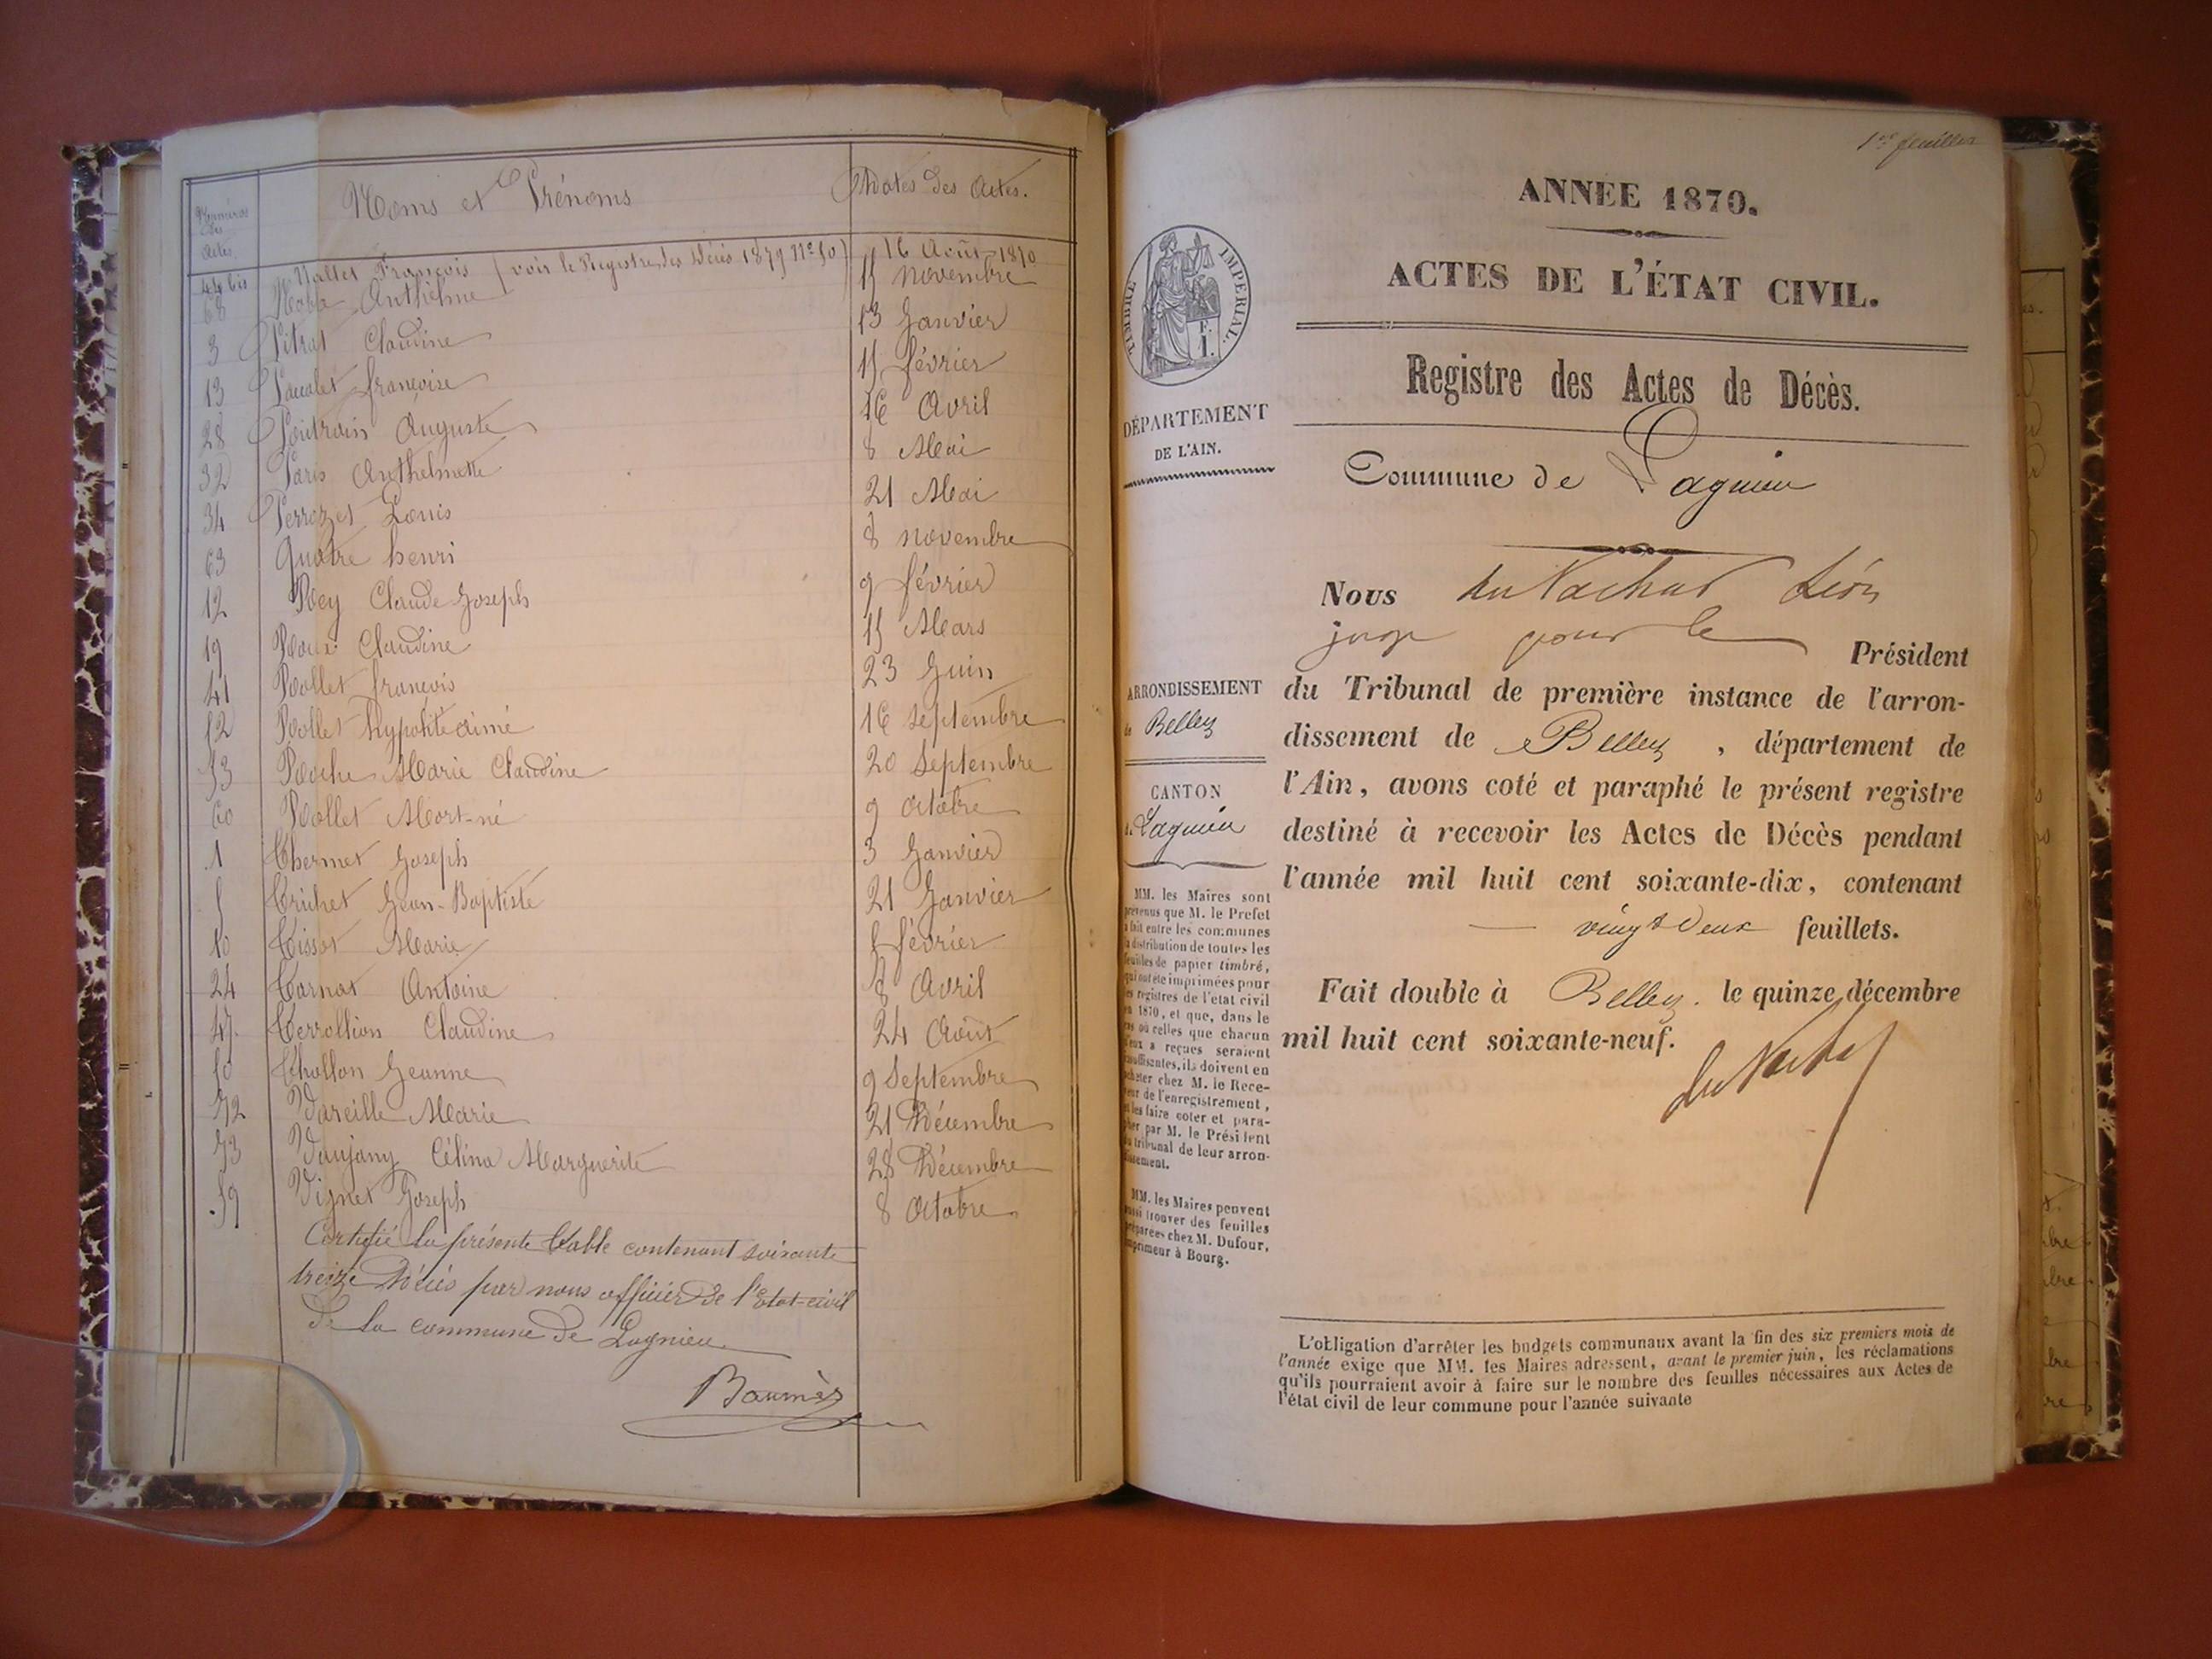 Numéros
des
Actes.
Noms et Prénoms
Dates des Actes.
44 bis Nallet François (voir le Registre des Décès 1879 Nº 50) 16 Août 1870
68 Anthelme 15 novembre
3 Pitrat Claudine 13 Janvier
13 françoise 15 février
28 Poutrain Auguste 16 Avril
32 Paris Anthelmette 8 Mai
34 Perrozet Louis 21 Mai
63 Quatre henri 8 novembre
12 Rey Claude Joseph 9 février
19 Roux Claudine 15 Mars
41 Rollet françois 23 Juin
52 Rollet hypolite aimé 16 septembre
53 Roche Marie Claudine 20 Septembre
60 Rollet Mort-né 9 octobre
1 Thermet Joseph 3 Janvier
5 Trichet Jean-Baptiste 21 Janvier
10 Tissot Marie 5 février
24 Tornat Antoine 8 Avril
47 Terrollion Claudine 24 Août
50 Thollon Jeanne 9 Septembre
72 Vareille Marie 21 Décembre
73 Vaujany Célina Marguerite 28 Décembre
59 Vignet Joseph 8 Octobre
Certifié la présente Table contenant soixante
treize Décès par nous officier de l'Etat-civil
de la commune de Lagnieu
1er feuillet
ANNÉE 1870.
ACTES DE L'ÉTAT CIVIL.
Registre des Actes de Décès.
Commune de Lagnieu
TIMBRE IMPERIAL.
F.
I.
DÉPARTEMENT
DE L'AIN.
ARRONDISSEMENT
de Belley
CANTON
de Lagnieu
MM. les Maires sont
prévenus que M. le Prefet
a fait entre les communes
la distribution de toutes les
feuilles de papier timbré,
qui ont été imprimées pour
les registres de l'etat civil
en 1870, et que, dans le
cas où celles que chacun
d'eux a reçues seraient
insuffisantes, ils doivent en
acheter chez M. le Rece-
veur de l'enregistrement,
et les faire coter et para-
pher par M. le Président
du tribunal de leur arron-
dissement.
MM. les Maires peuvent
aussi trouver des feuilles
préparées chez M. Dufour,
imprimeur à Bourg.
Nous du Nachat Léon
juge pour le Président
du Tribunal de première instance de l'arron-
dissement de Belley, département de
l'Ain, avons coté et paraphé le présent registre
destiné à recevoir les Actes de Décès pendant
l'année mil huit cent soixante-dix, contenant
vingt deux feuillets.
Fait double à Belley. le quinze décembre
mil huit cent soixante-neuf.
L'obligation d'arrêter les budgets communaux avant la fin des six premiers mois de
l'année exige que MM. les Maires adressent, avant le premier juin, les réclamations
qu'ils pourraient avoir à faire sur le nombre des feuilles nécessaires aux Actes de
l'état civil de leur commune pour l'année suivante